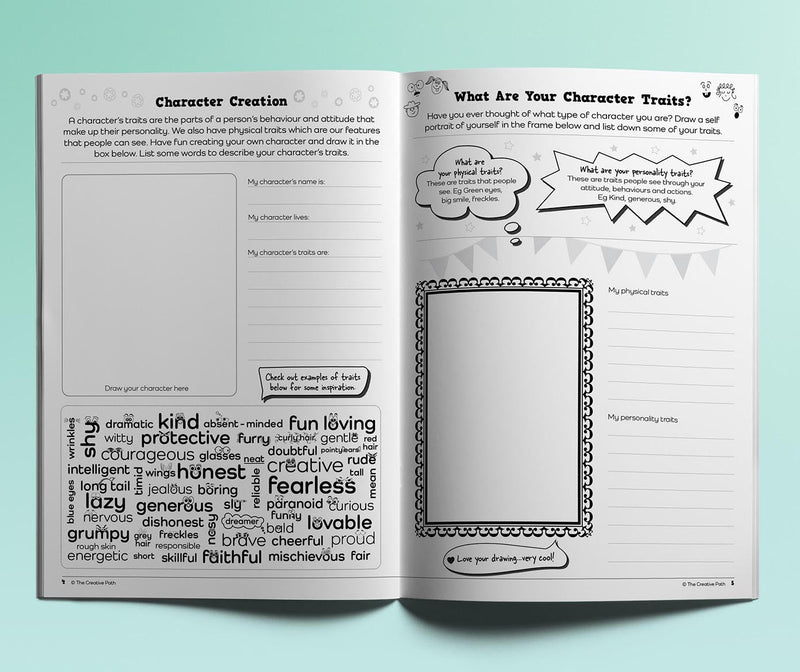 Character Creation
A character's traits are the parts of a person's behaviour and attitude that
make up their personality. We also have physical traits which are our features
that people can see. Have fun creating your own character and draw it in the
box below. List some words to describe your character's traits.
My character's name is:
My character lives:
My character's traits are:
Draw your character here
Check out examples of traits
below for some inspiration
wrinkles shy dramatic kind absent-minded fun loving
witty protective furry curly hair gentle red hair
courageous glasses neat doubtful pointy ears
intelligent timid wings honest creative rude
long tail jealous boring reliable fearless tall mean
blue eyes lazy generous sly paranoid curious
nervous dishonest messy dreamer funny bald lovable
grumpy grey hair freckles brave cheerful proud
rough skin responsible
energetic short skillful faithful mischievous fair
4 © The Creative Path
What Are Your Character Traits?
Have you ever thought of what type of character you are? Draw a self
portrait of yourself in the frame below and list down some of your traits.
What are
your physical traits?
These are traits that people
see. Eg Green eyes,
big smile, freckles.
What are your personality traits?
These are traits people see through your
attitude, behaviours and actions.
Eg Kind, generous, shy.
My physical traits
My personality traits
Love your drawing...very cool!
© The Creative Path 5